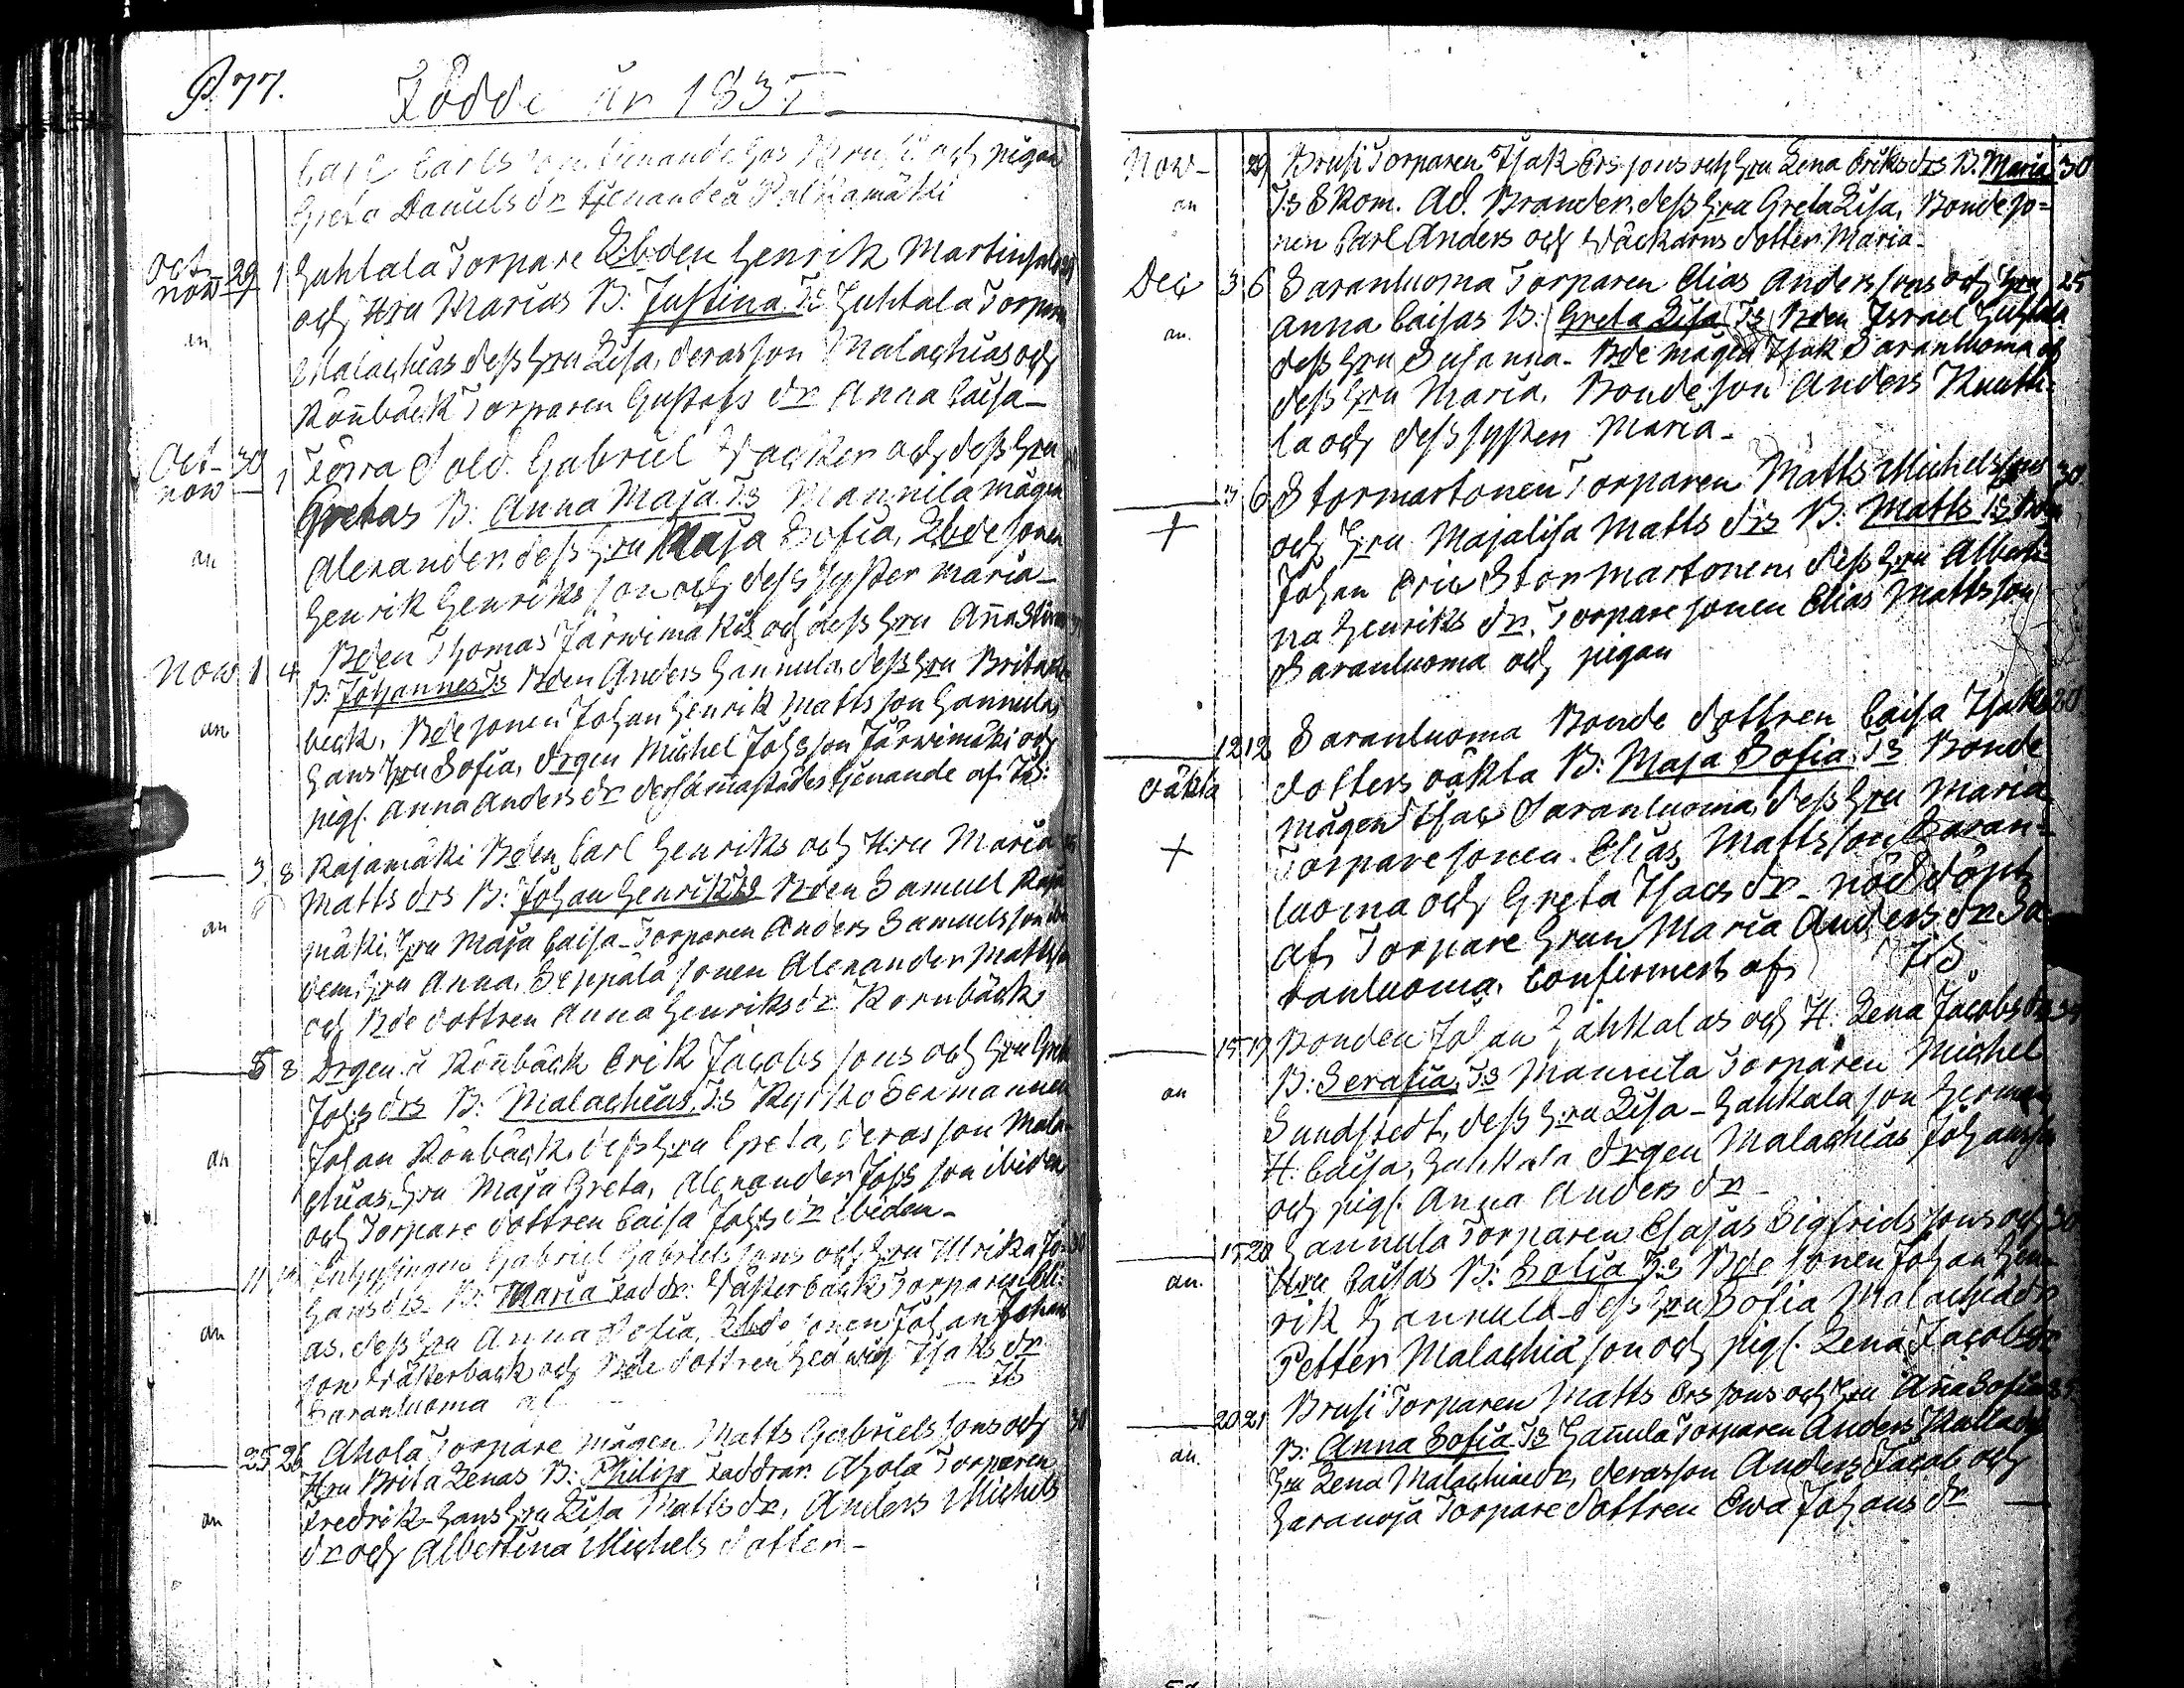 P. 77.
Födde år 1835
Carl Carlsson tienande hos Brusi och pigan
Greta Daniels dr tjenande å Palkamäki
Oct 29 1 Huhtala Torpare Lbden Henrik Martinsons
nov och Hru Marias B: Justina Ts Huhtala Torparen
Malachias dess Hru Lisa, deras son Malachias och
Rönbäck Torparen Gustafs dr Anna Caisa
Oct 30 1 Törra Sold. Gabriel Wacker och dess Hru
nov Gretas B: Anna Maja Ts Mannila mågen
an Alexander dess Hru Maja Sofia, Lbde sonen
Henrik Henriksson och dess syster Maria
Nov 1 4 Bden Thomas Järwimäkis och dess Hru Anna Stinas
B: Johannes Ts Bden Anders Hannula, dess Hru Brita
an beck. Bde sonen Johan Henrik Mattsson Hannula,
hans Hru Sofia, drgen Michel Johsson Järwimäki och
pigl. Anna Anders dr dersammastädes tjenande af
3 8 Rajamäki Bden Carl Henriks och Hru Maria
Matts drs B: Johan Henrik Ts Bden Samuel Raja
an mäki, Hru Maja Caisa Torparen Anders Samuelsson
dem, Hru Anna, Seppälä sonen Alexander Mattsson
och Bde dottren Anna Henriks dr Rornbäck
5 8 Drgen å Rönbäck Erik Jacobs sons och Hru Greta
Johs drs B: Malachias, Ts Kyrko Sexmannen
an Johan Rönbäck, dess Hru Greta, deras son Mala
chias, Hru Maja Greta, Alexander Johs son ibidem
och Torpare dottren Caisa Johs dr ibidem
11 Inhysingen Gabriel Gabrielssons och Hru Ulrika Jo 30
hans drs B: Maria Faddr: Wästerback Torparen Eli
an as, dess Hru Anna Sofia, Lbde sonen Johan Johans
son Wästerback och Bde dottren Hedwig Isaks dr
Saranluoma af
25 26 Ahola Torpare mågen Matts Gabrielssons och 30
Hru Brita Lenas B: Philip Faddrar: Ahola Torparen
an Fredrik hans Hru Lisa Matts dr, Anders Michels
dr och Albertina Michels dotter
Nov 29 Brusi Torparen Isak Ers sons och Hru Lena Eriks drs B. Maria 30
an Ts Skom. Ad. Brander, dess Hru Greta Lisa, Bondeso=
nen Carl Anders och Wäckarns dotter Maria
Dec 3 6 Saranluoma Torparen Elias Anderssons och Hru 25
an. Anna Caisas B: Greta Lisa Ts Bden Israel Huhtala
dess Hru Susanna. Bde mågen Isak Saranluoma och
dess Hru Maria, Bondeson Anders Knutti=
la och dess syster Maria
3 6 Stormartonen Torparen Matts Michelssons 30
+ och Hru Majalisa Matts drs B: Matts Ts Bden
Johan Eric Stormartonen, dess Hru Alberti=
na Henriks dr, Torpare sonen Elias Mattsson
Saranluoma och pigan
12 12 Saranluoma Bonde dottren Caisa Isaks 20
oäkta dotters oäkta B: Maja Sofia. Ts Bonde
mågen Isac Saranluoma, dess Hru Maria
+ Torpare sonen Elias Mattsson Saran=
luoma och Greta Isacs dr nöddöpt
af Torpare Hrun Maria Anders dr Sa=
ranluoma. Confirmert af
15 17 Bonden Johan Hahkalas och H. Lena Jacobs drs
an B: Serafia, Ts Mannila Torparen Michel
Sundstedt, dess Hru Lisa Hahkala son Herman
H. Caisa, Hahkala drgen Malachias Johansson
och pigl. Anna Anders dr
15 20 Hannula Torparen Esajas Sigfridssons och 30
an. Hru Caisas B: Sofia Ts Bde sonen Johan Hen
rik Hannula dess Hru Sofia Malachia dr
Petter Malachiason och pigl. Lena Jacobs dr
20 21 Brusi Torparen Matts Ers sons och Hru Anna Sofias
an. B: Anna Sofia Ts Hannula Torparen Anders
Hru Lena Malachiae dr, deras son Anders Jacob och
Haranoja Torpare dottren Ewa Johans dr